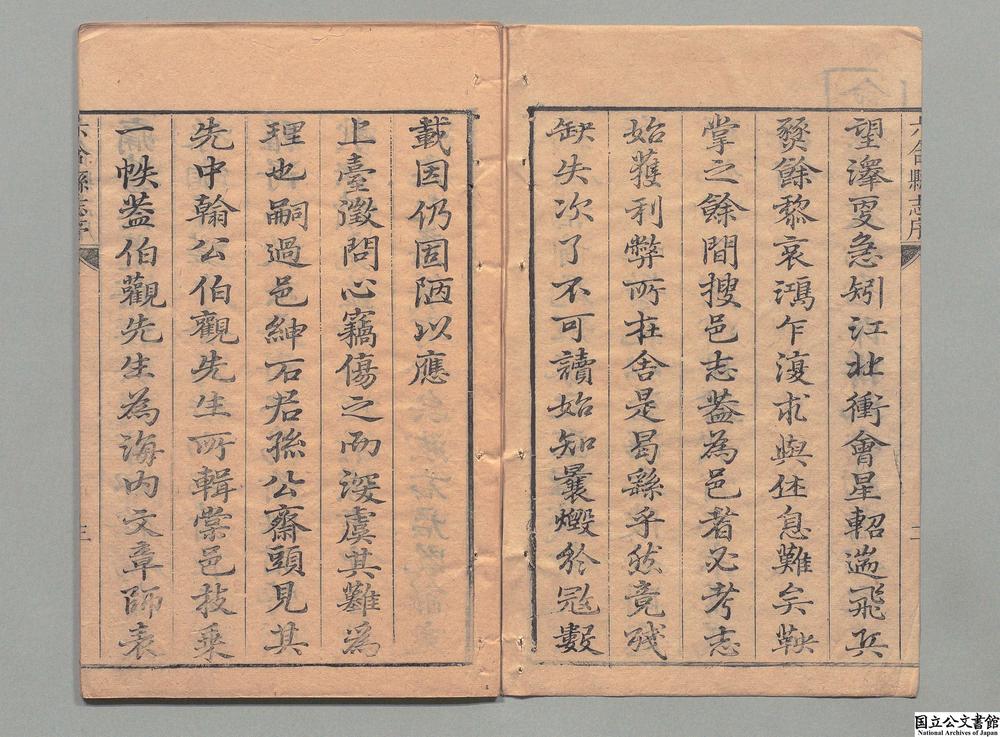 六合縣志序
望澤更急矧江北衝會星軺遄飛兵
燹餘黎哀鴻乍復求與休息難矣鞅
掌之餘間搜邑志蓋為邑者必考志
始獲利弊所在舍是曷繇乎然竟殘
缺失次了不可讀始知曩燬於冦數
二
載因仍固陋以應
上臺徵問心竊傷之而深虞其難為
理也嗣過邑紳石君孫公齋頭見其
先中翰公伯觀先生所輯棠邑枝乗
一帙葢伯觀先生為海内文章師表
六合縣志序
三
国立公文書館
National Archives of Japan